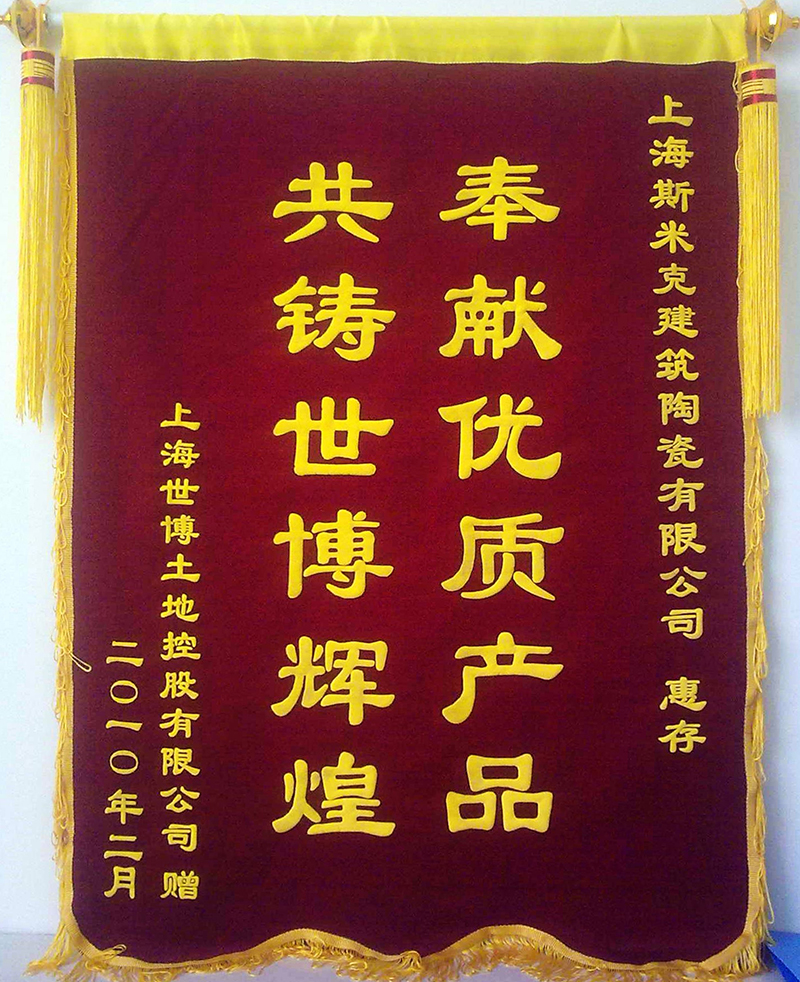 上海斯米克建筑陶瓷有限公司 惠存
奉献优质产品
共铸世博辉煌
上海世博土地控股有限公司 赠
二〇一〇年二月